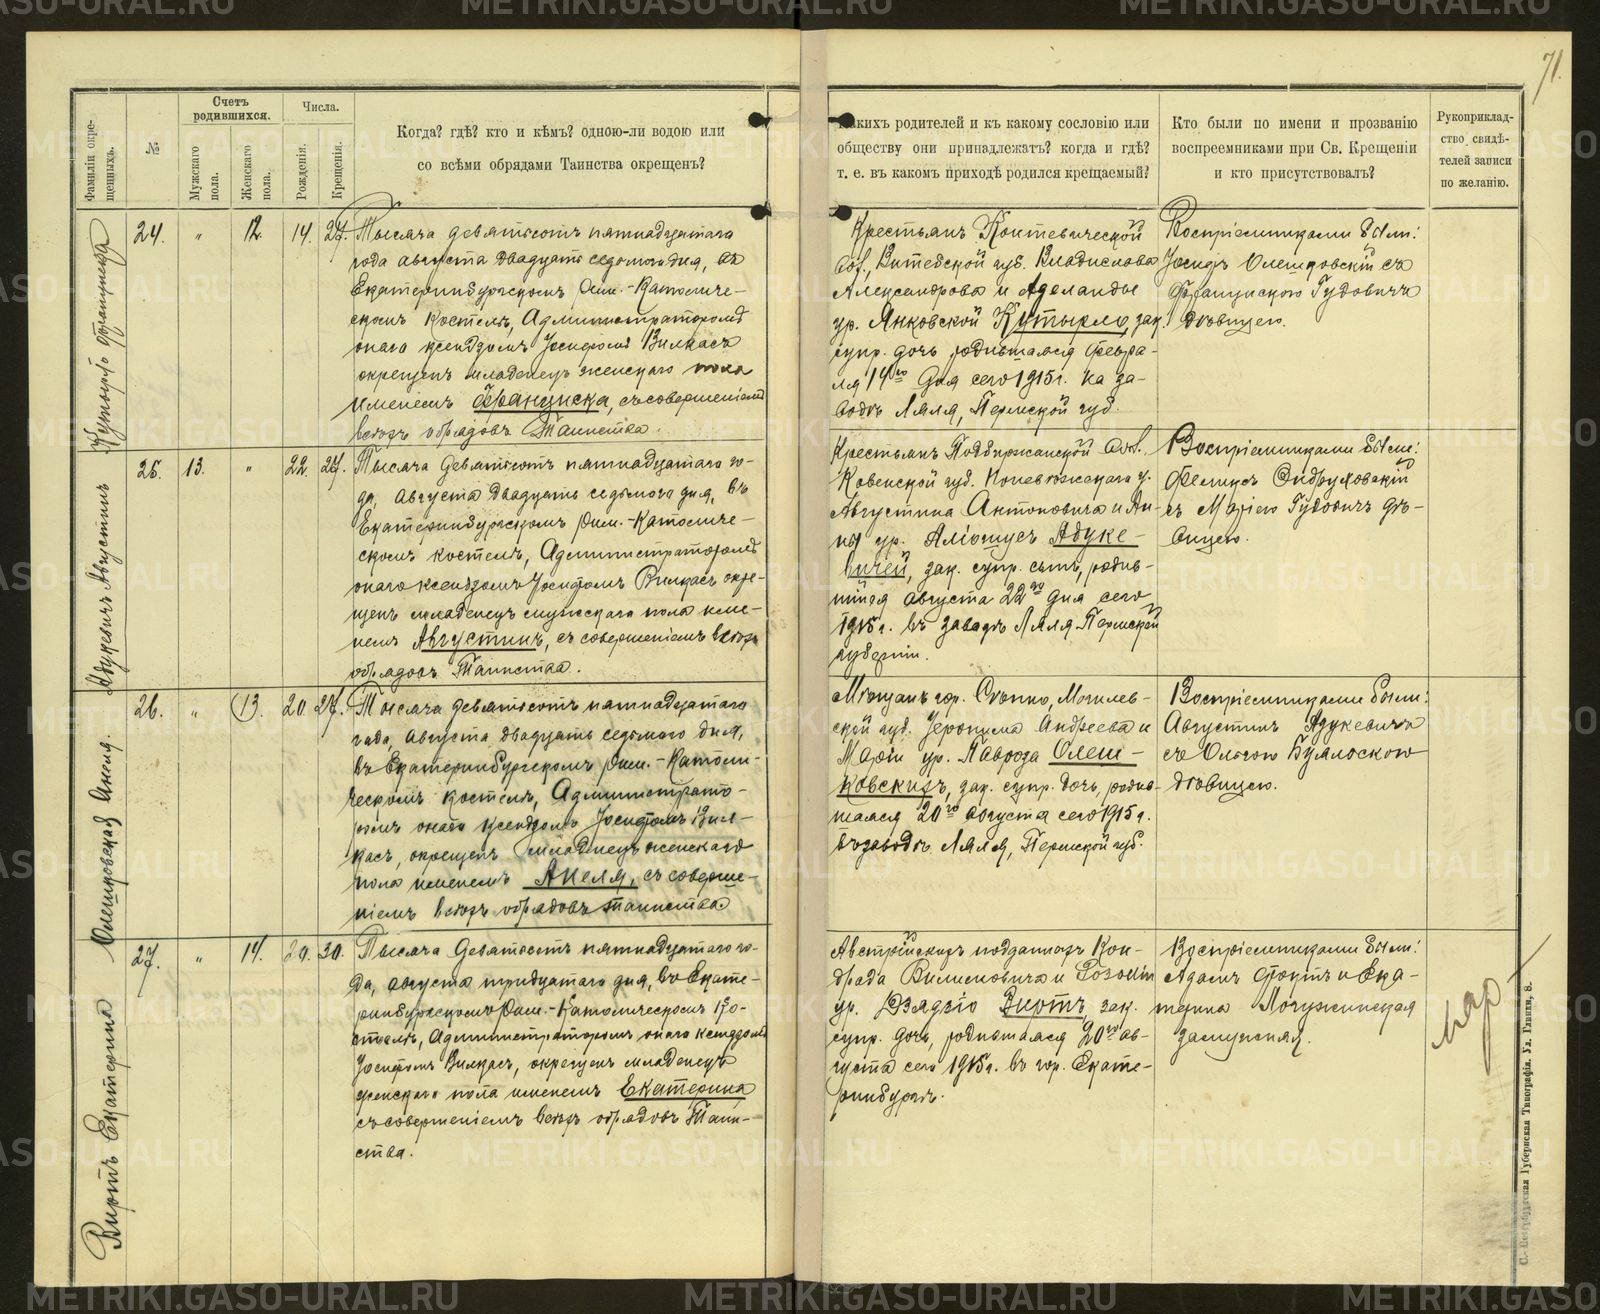 71.
Фамиліи окре-
щенныхъ.
№
Счетъ
родившихся.
Мужскаго
пола.
Женскаго
пола.
Числа.
Рожденія.
Крещенія.
Когда? гдѣ? кто и кѣмъ? одною-ли водою или
со всѣми обрядами Таинства окрещенъ?
Какихъ родителей и къ какому сословію или
обществу они принадлежатъ? когда и гдѣ?
т. е. въ какомъ приходѣ родился крещаемый?
Кто были по имени и прозванію
воспреемниками при Св. Крещеніи
и кто присутствовалъ?
Рукоприклад-
ство свидѣ-
телей записи
по желанію.
Кутырло Франциска
24. " 12. 14. 27.
Тысяча девятьсотъ пятнадцатаго
года августа двадцать седьмого дня, въ
Екатеринбургскомъ Рим.-Католиче-
скомъ костелѣ, Администраторомъ
онаго ксендзомъ Іосифомъ Вилкасъ
окрещенъ младенецъ женскаго пола
именемъ Франциска, съ совершеніемъ
всѣхъ обрядовъ Таинства.
Крестьянъ
вол., Витебской губ. Владислава
Александрова и Аделаиды
ур. Янковской Кутырло, зак.
супр. дочь родившаяся Февра-
ля 14го дня сего 1915 г. на за-
водѣ Ляля, Пермской губ.
Воспріемниками были:
Іосифъ Олешковскій съ
Францискою Гудовичъ
дѣвицею.
Адукевичъ Августинъ
25. 13. " 22. 27.
Тысяча девятьсотъ пятнадцатаго го-
да, августа двадцать седьмого дня, въ
Екатеринбургскомъ Рим.-Католиче-
скомъ костелѣ, Администраторомъ
онаго ксендзомъ Іосифомъ Вилкасъ окре-
щенъ младенецъ мужскаго пола име-
немъ Августинъ, съ совершеніемъ всѣхъ
обрядовъ Таинства.
Крестьянъ вол.
Ковенской губ. Поневѣжскаго у.
Августина Антоновича и Ан-
ны ур. Адуке-
вичей, зак. супр. сынъ, родив-
шійся августа 22го дня сего
1915 г. въ заводѣ Ляля Пермской
губерніи.
Воспріемниками были:
Феликсъ
съ Маріею Гудовичъ дѣ-
вицею.
Олешковская Анеля.
26. " 13. 20. 27.
Тысяча девятьсотъ пятнадцатаго
года, августа двадцать седьмого дня,
въ Екатеринбургскомъ Рим.-Католи-
ческомъ костелѣ, Администрато-
ромъ онаго ксендзомъ Іосифомъ Вил-
касъ, окрещенъ младенецъ женскаго
пола именемъ Анеля, съ соверше-
ніемъ всѣхъ обрядовъ Таинства
Мѣщанъ гор. Могилев-
ской губ. Іеронима Андреева и
Маріи ур. Олеш-
ковскихъ, зак. супр. дочь, родив-
шаяся 20го августа сего 1915 г.
въ заводѣ Ляля, Пермской губ.
Воспріемниками были:
Августинъ Адукевичъ
съ Ольгою
дѣвицею.
Виртъ Екатерина
27. " 14. 20. 30.
Тысяча девятьсотъ пятнадцатаго го-
да, августа тридцатаго дня, въ Екате-
ринбургскомъ Рим.-Католическомъ ко-
стелѣ, Администраторомъ онаго ксендзомъ
Іосифомъ Вилкасъ, окрещенъ младенецъ
женскаго пола именемъ Екатерина
съ совершеніемъ всѣхъ обрядовъ Таин-
ства.
Австрійскихъ подданныхъ Кон-
драда и Розаліи
ур. Дзядзіо Виртъ, зак.
супр. дочь, родившаяся 20го ав-
густа сего 1915 г. въ гор. Екате-
ринбургѣ.
Воспріемниками были:
Адамъ и Ека-
терина
замужняя.
С.-Петербургская Губернская Типографія. Ул. Глинки, 8.
METRIKI.GASO-URAL.RU